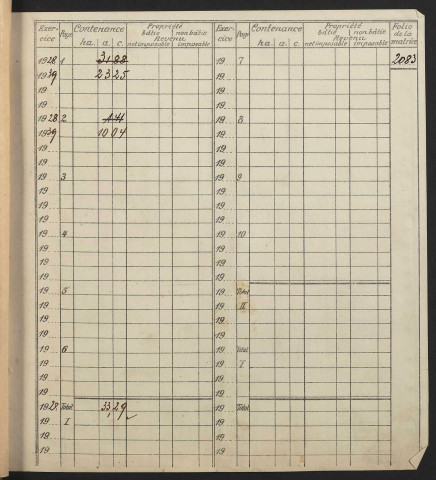 Exer-cice Page Contenance Propriété bâtie non bâtie Revenu net imposable imposable Exer-cice Page Contenance Propriété bâtie non bâtie Revenu net imposable imposable Folio de la matrice
ha. a. c. ha. a. c.
1928 1 31 88 19 7 2083
1939 23 25 19
19 19
19 19
1928 2 19 8
1939 10 04 19
19 19
19 19
19 3 19 9
19 19
19 19
19 19
19 4 19 10
19 19
19 19
19 19
19 5 19 Total
19 II 19
19 19
19 19
19 6 19 Total
19 I 19
19 19
19 19
1928 Total 33 29 19 Total
19 I 19
19 19
19 19